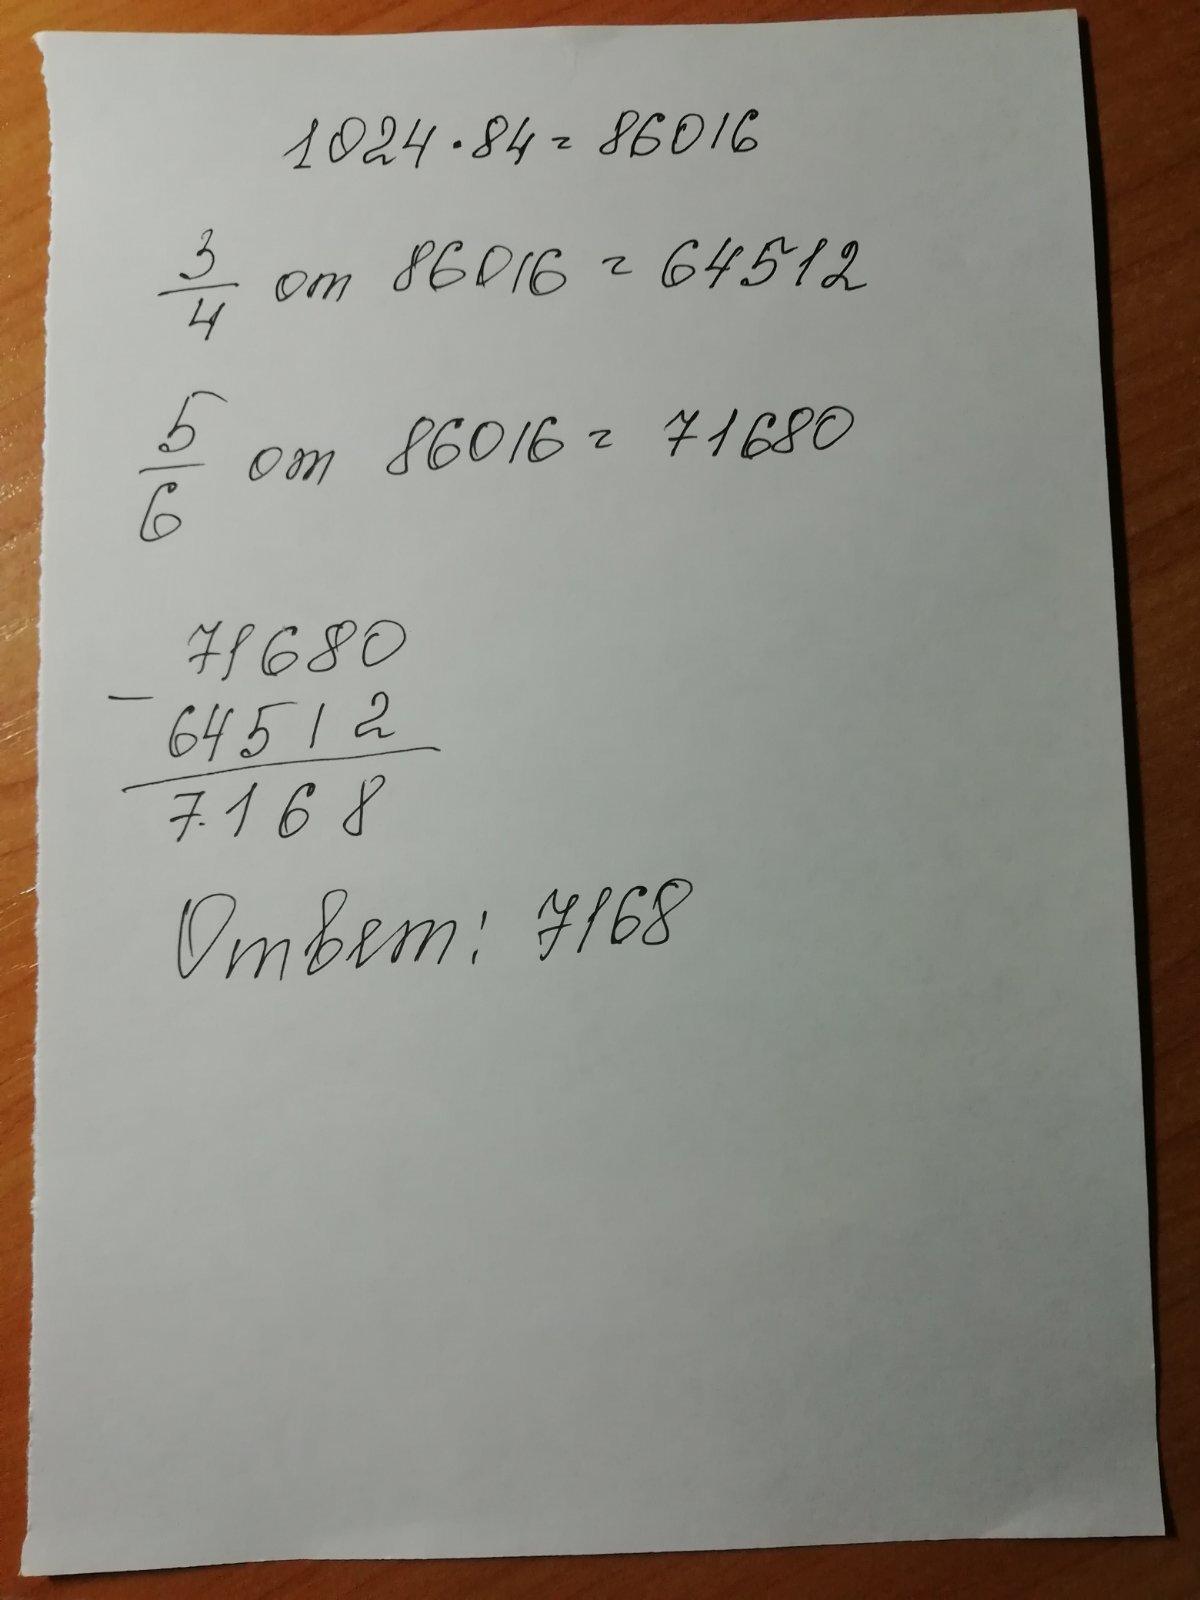 1024·84=86016
3/4 от 86016=64512
5/6 от 86016=71680
71680
-
64512
7168
Ответ: 7168